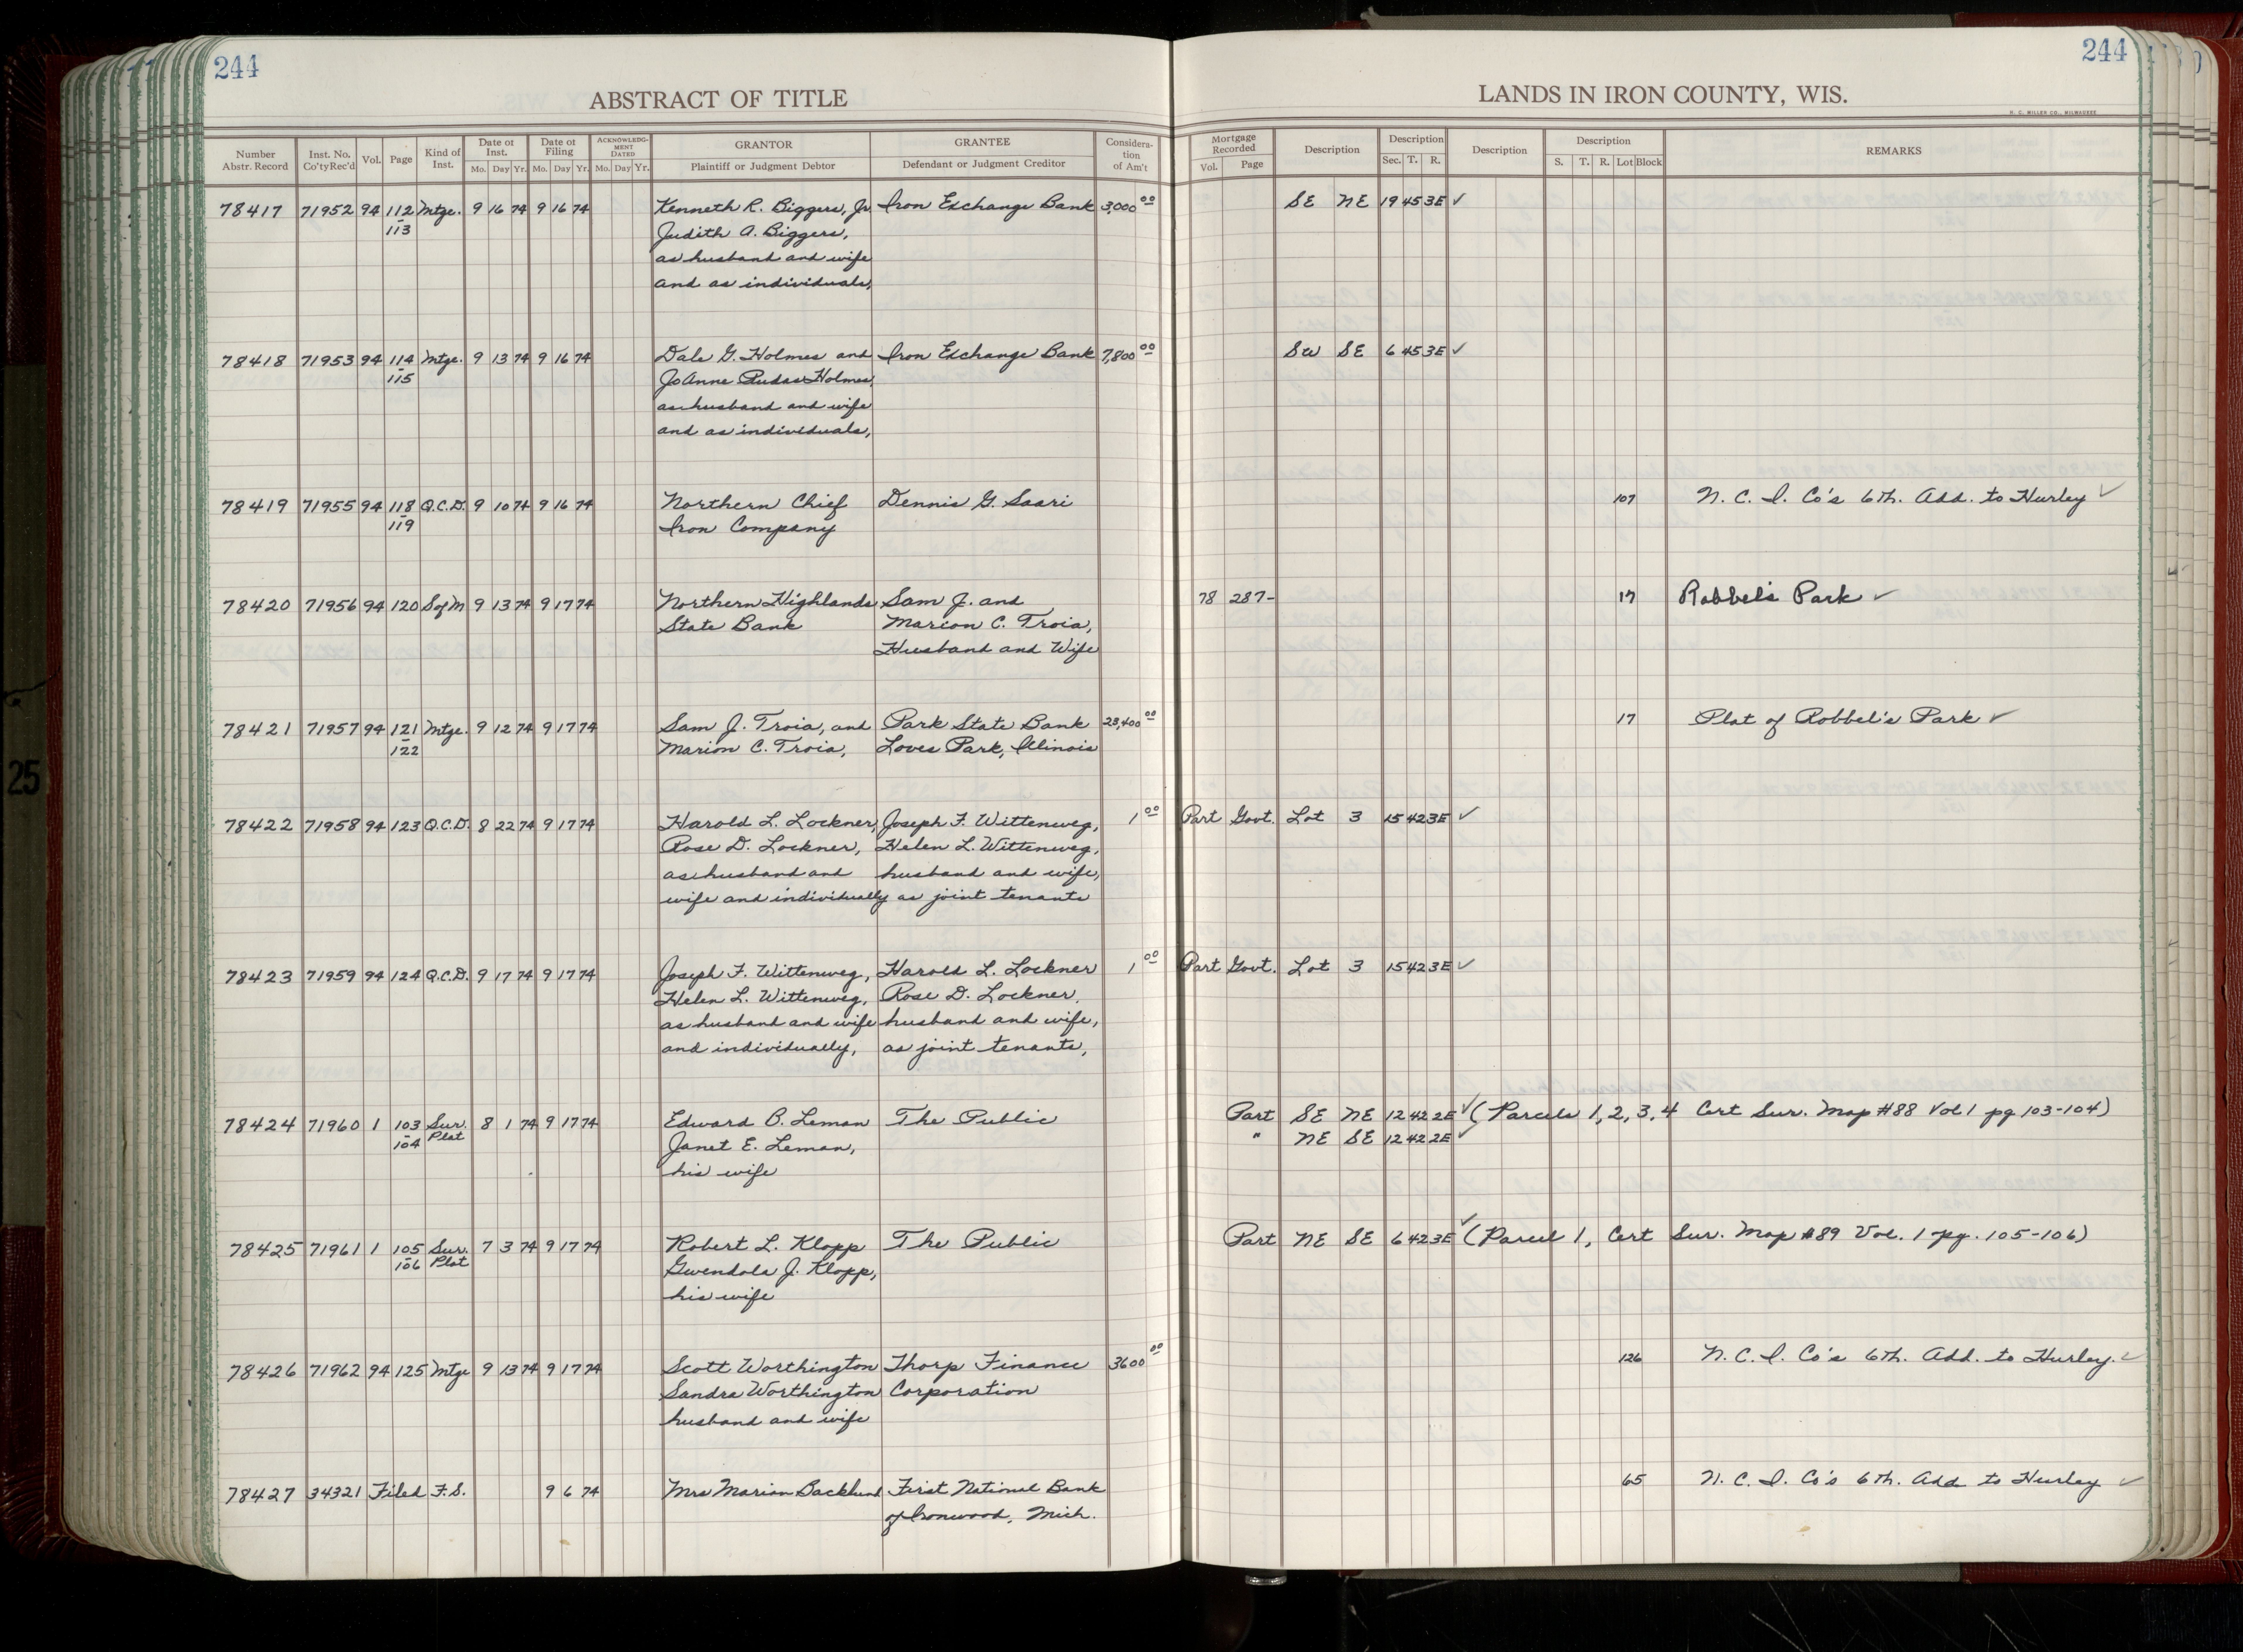 244
ABSTRACT OF TITLE
244
LANDS IN IRON COUNTY, WIS.
H. C. MILLER CO., MILWAUKEE
Number Abstr. Record Inst. No. Co'ty Rec'd Vol. Page Kind of Inst. Date of Inst. Mo. Day Yr. Date of Filing Mo. Day Yr. ACKNOWLEDGMENT DATED Mo. Day Yr. GRANTOR Plaintiff or Judgment Debtor GRANTEE Defendant or Judgment Creditor Consideration of Am't Mortgage Recorded Vol. Page Description Description Sec. T. R. Description Description S. T. R. Lot Block REMARKS
78417 71952 94 112 Mtge. 9 16 74 9 16 74 Kenneth R. Biggers, Jr. Iron Exchange Bank 3,000 00 SE NE 19 45 3E ✓
113 Judith A. Biggers,
as husband and wife
and as individuals,
78418 71953 94 114 Mtge. 9 13 74 9 16 74 Dale G. Holmes and Iron Exchange Bank 7,800 00 SW SE 6 45 3E ✓
115 JoAnne Rudas Holmes,
as husband and wife
and as individuals,
78419 71955 94 118 Q.C.D. 9 10 74 9 16 74 Northern Chief Dennis G. Saari 107 N. C. I. Co's 6th. Add. to Hurley ✓
119 Iron Company
78420 71956 94 120 S of M 9 13 74 9 17 74 Northern Highlands Sam J. and 78 287- 17 Robbel's Park ✓
State Bank Marion C. Troia,
Husband and Wife
78421 71957 94 121 Mtge. 9 12 74 9 17 74 Sam J. Troia, and Park State Bank 23,400 00 17 Plat of Robbel's Park ✓
122 Marion C. Troia, Loves Park, Illinois
78422 71958 94 123 Q.C.D. 8 22 74 9 17 74 Harold L. Lockner, Joseph F. Wittenweg, 1 00 Part Govt. Lot 3 15 42 3E ✓
Rose D. Lockner, Helen L. Wittenweg,
as husband and husband and wife,
wife and individually as joint tenants
78423 71959 94 124 Q.C.D. 9 17 74 9 17 74 Joseph F. Wittenweg, Harold L. Lockner 1 00 Part Govt. Lot 3 15 42 3E ✓
Helen L. Wittenweg, Rose D. Lockner,
as husband and wife husband and wife,
and individually, as joint tenants,
78424 71960 1 103 Sur. 8 1 74 9 17 74 Edward B. Leman The Public Part SE NE 12 42 2E ✓ (Parcels 1, 2, 3, 4 Cert Sur. Map #88 Vol 1 pg 103-104)
104 Plat Janet E. Leman, " NE SE 12 42 2E ✓
his wife
78425 71961 1 105 Sur. 7 3 74 9 17 74 Robert L. Klopp The Public Part NE SE 6 42 3E ✓ (Parcel 1, Cert Sur. Map #89 Vol. 1 pg. 105-106)
106 Plat Gwendola J. Klopp,
his wife
78426 71962 94 125 Mtge 9 13 74 9 17 74 Scott Worthington Thorp Finance 3600 00 126 N. C. I. Co's 6th. Add. to Hurley. ✓
Sandra Worthington Corporation
husband and wife
78427 34321 Filed F.S. 9 6 74 Mrs Marian Backlund First National Bank 65 N. C. I. Co's 6th. Add to Hurley ✓
of Ironwood, Mich.
25